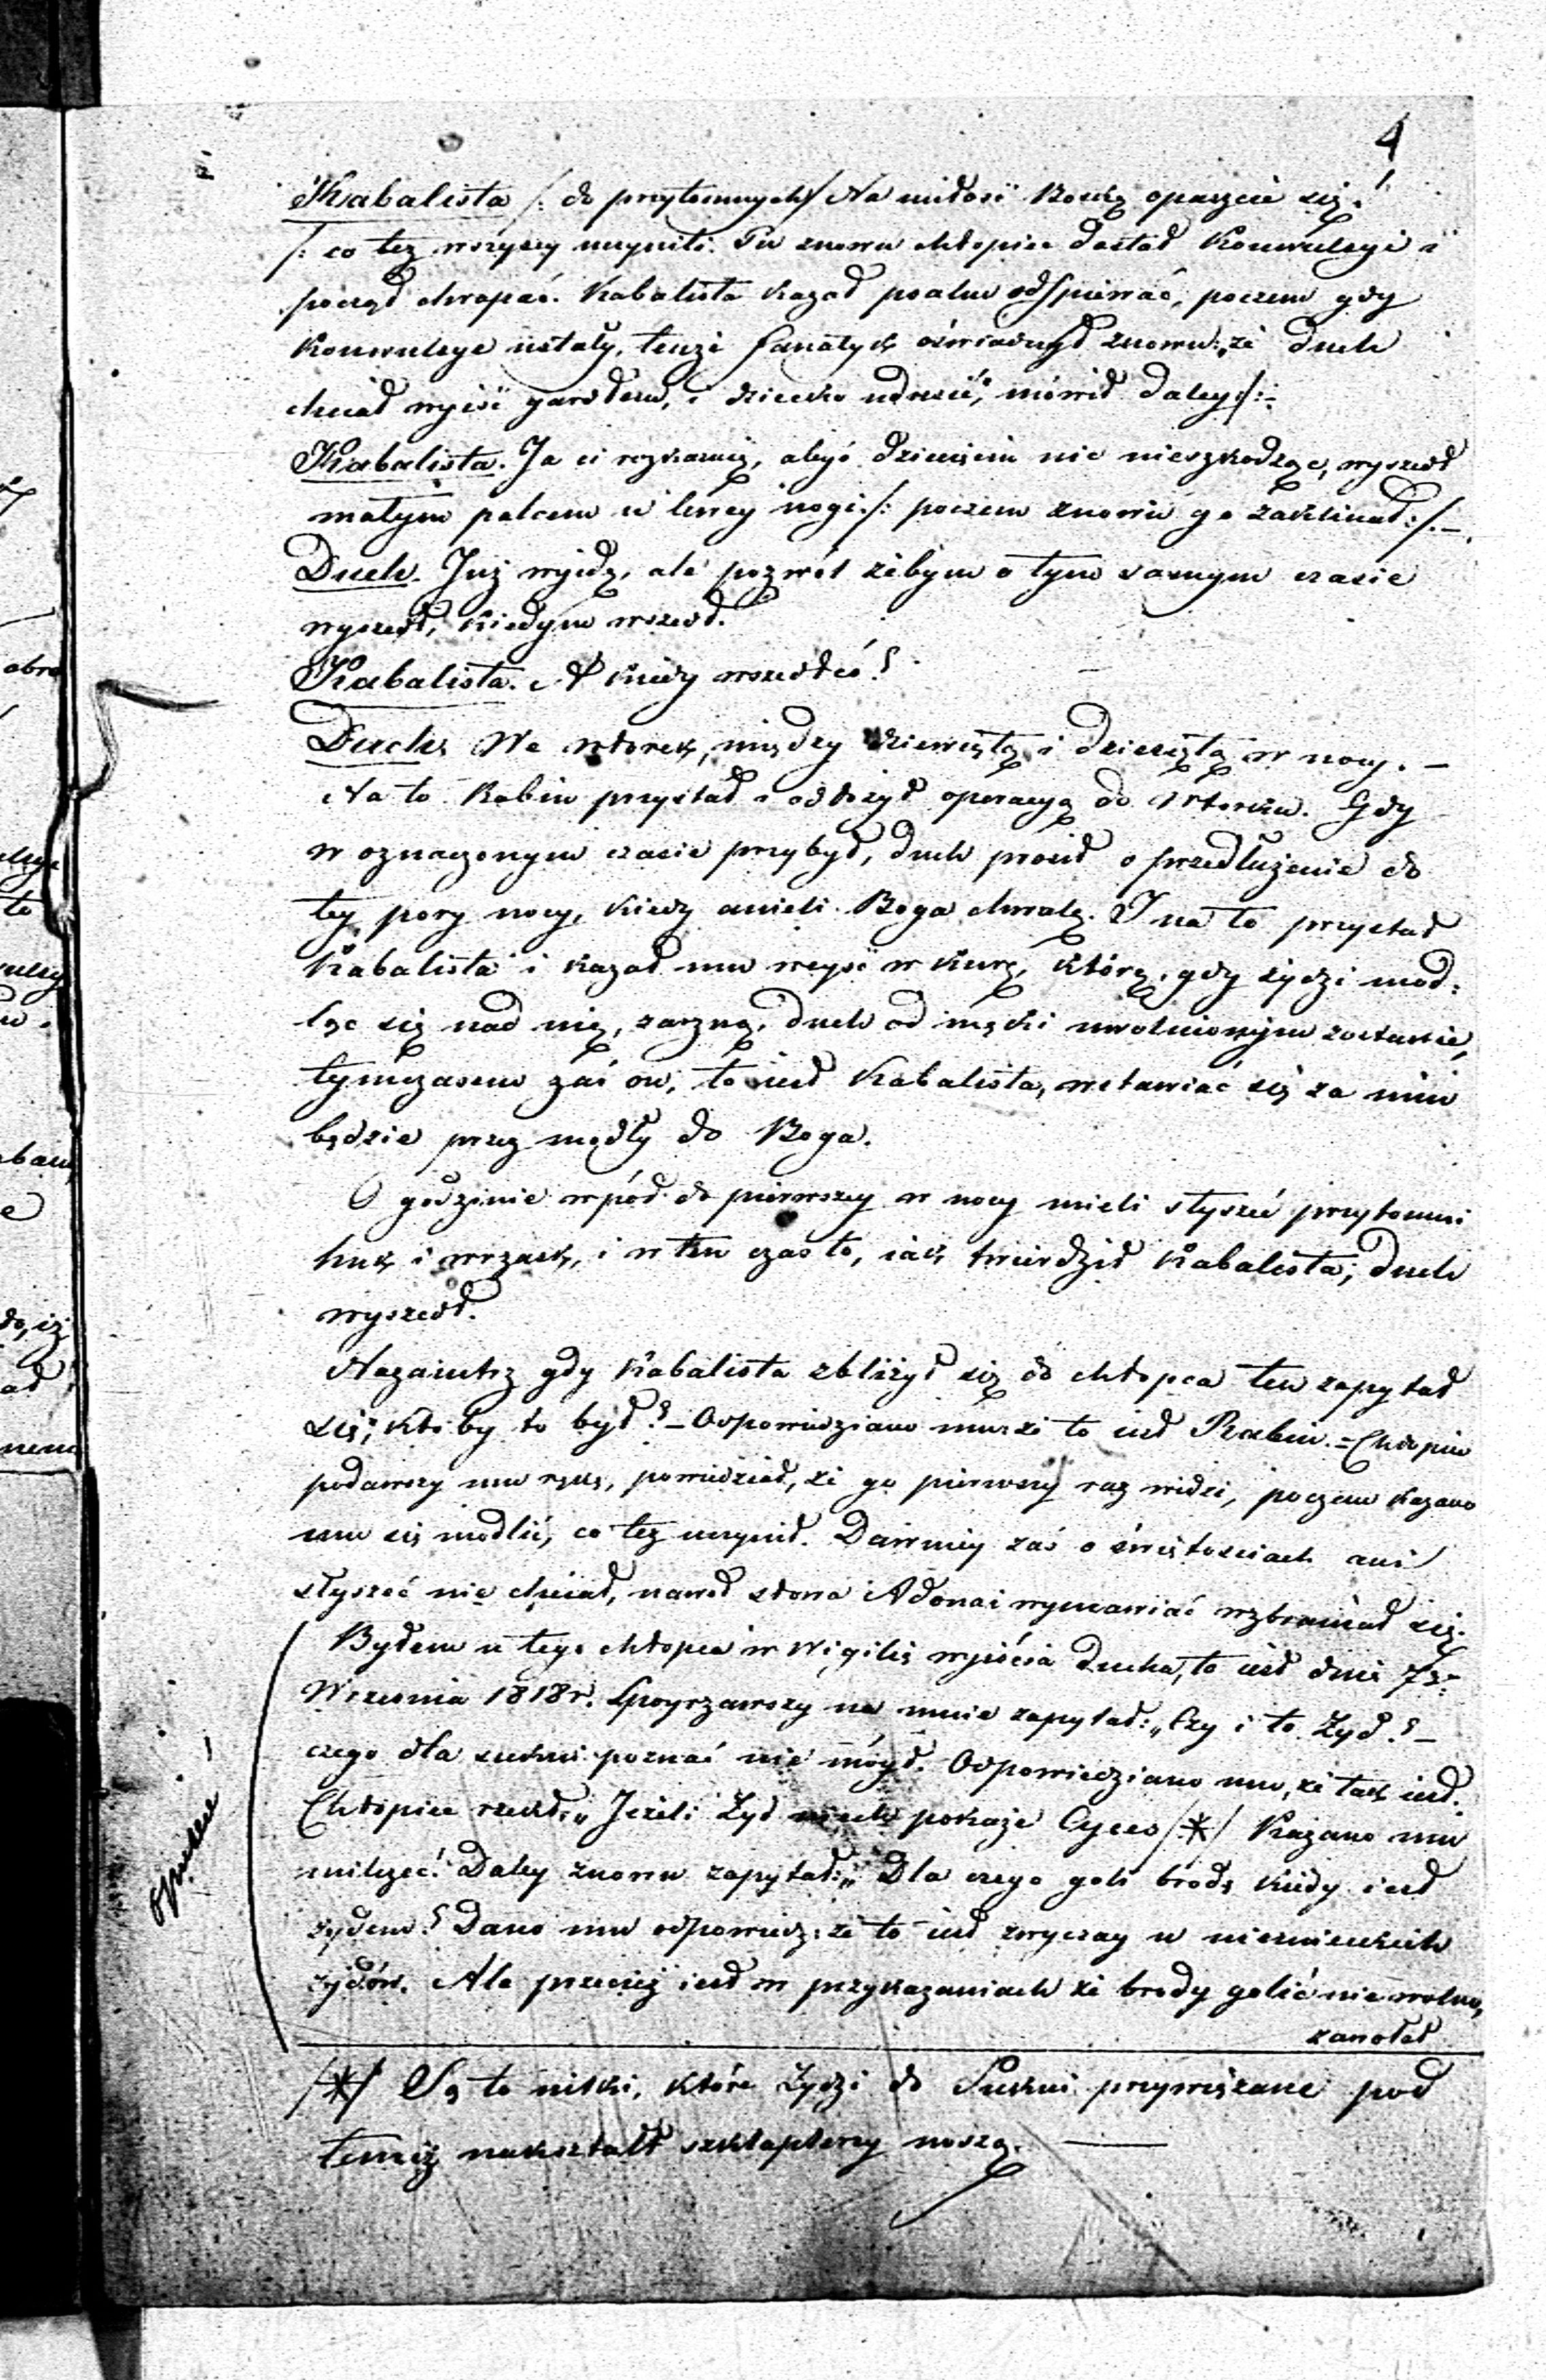 4
Kabalista /: do przytomnych/ Na miłość Boską opaszcie się!
/: co też wszyscy uczynili. Tu znowu chłopiec dostał Konwulsyi i
począł chrapać. Kabalista kazał psalm odśpiewać, poczem gdy
Konwulsye ustały, tenże fanatyk oświadczył znowu, że duch
chciał wyiść gardłem, i dziecko udusić, mówił daley:/:
Kabalista. Ja ci rozkazuię, abyś dziecięciu nic nieszkodząc, wyszedł
małym palcem u lewey nogi. /: poczem znowu go zaklinał :/. –
Duch. Już wyidę, ale pozwól żebym o tym samym czasie
wyszedł, kiedym wszedł.
Kabalista. A kiedy wszedłeś?
Duch. We wtorek, między dziewiątą i dziesiątą w nocy. –
Na to Rabin przystał i odłożył operacyą do wtorku. Gdy
w oznaczonym czasie przybył, duch prosił o przedłużenie do
tey pory nocy, kiedy anieli Boga chwalą. I na to przystał
Kabalista i kazał mu weyść w kurę, którą, gdy żydzi mod:
ląc się nad nią, zarzną, duch od męki uwolnionym zostanie,
tymczasem zaś on, to iest Kabalista, wstawiać się za nim
będzie przez modły do Boga.
O godzinie wpół do pierwszey w nocy mieli słyszeć przytomni
huk i wrzask, i w ten czas to, iak twierdził Kabalista, duch
wyszedł.
Nazaiutrz gdy Kabalista zbliżył się do chłopca ten zapytał
się; kto by to był? – Odpowiedziano mu że to iest Rabin. – Chłopiec
podawszy mu rękę, powiedział, że go pierwszy raz widzi, poczem kazano
mu się modlić, co też uczynił. Dawniey zaś o świętościach ani
słyszeć nie chciał, nawet słowa Adonai wymawiać wzbraniał się.
Byłem u tego chłopca w Wigilię wyiścia ducha, to iest dnia 7go
Września 1818 r. Spoyrzawszy na mnie zapytał: „Czy i to Żyd? –
czego dla sukni poznać nie mógł. Odpowiedziano mu, że tak iest.
Chłopiec rzekł: „Jeżeli Żyd niech pokaże Cyces /*/ Kazano mu
milczeć! Daley znowu zapytał: „Dla czego goli brodę kiedy iest
żydem? Dano mu odpowiedz: że to iest zwyczay u niemieckich
żydów. Ale przecież iest w przykazaniach że brody golić nie wolno,
zawołał
/*/ Są to nitki, które Żydzi do Sukni przywiązane pod
temiż nakształt szkaplerzy noszą. —